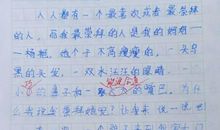 人人都有一个最喜欢或者最崇拜
的人,而我最崇拜的人是我的姐姐—
—杨艳。她个子不高瘦瘦的,一头乌
黑的头发,一双水汪汪的眼睛,
小巧的鼻子和一张的嘴巴。为什
么我说崇拜她呢?让我来说一说吧